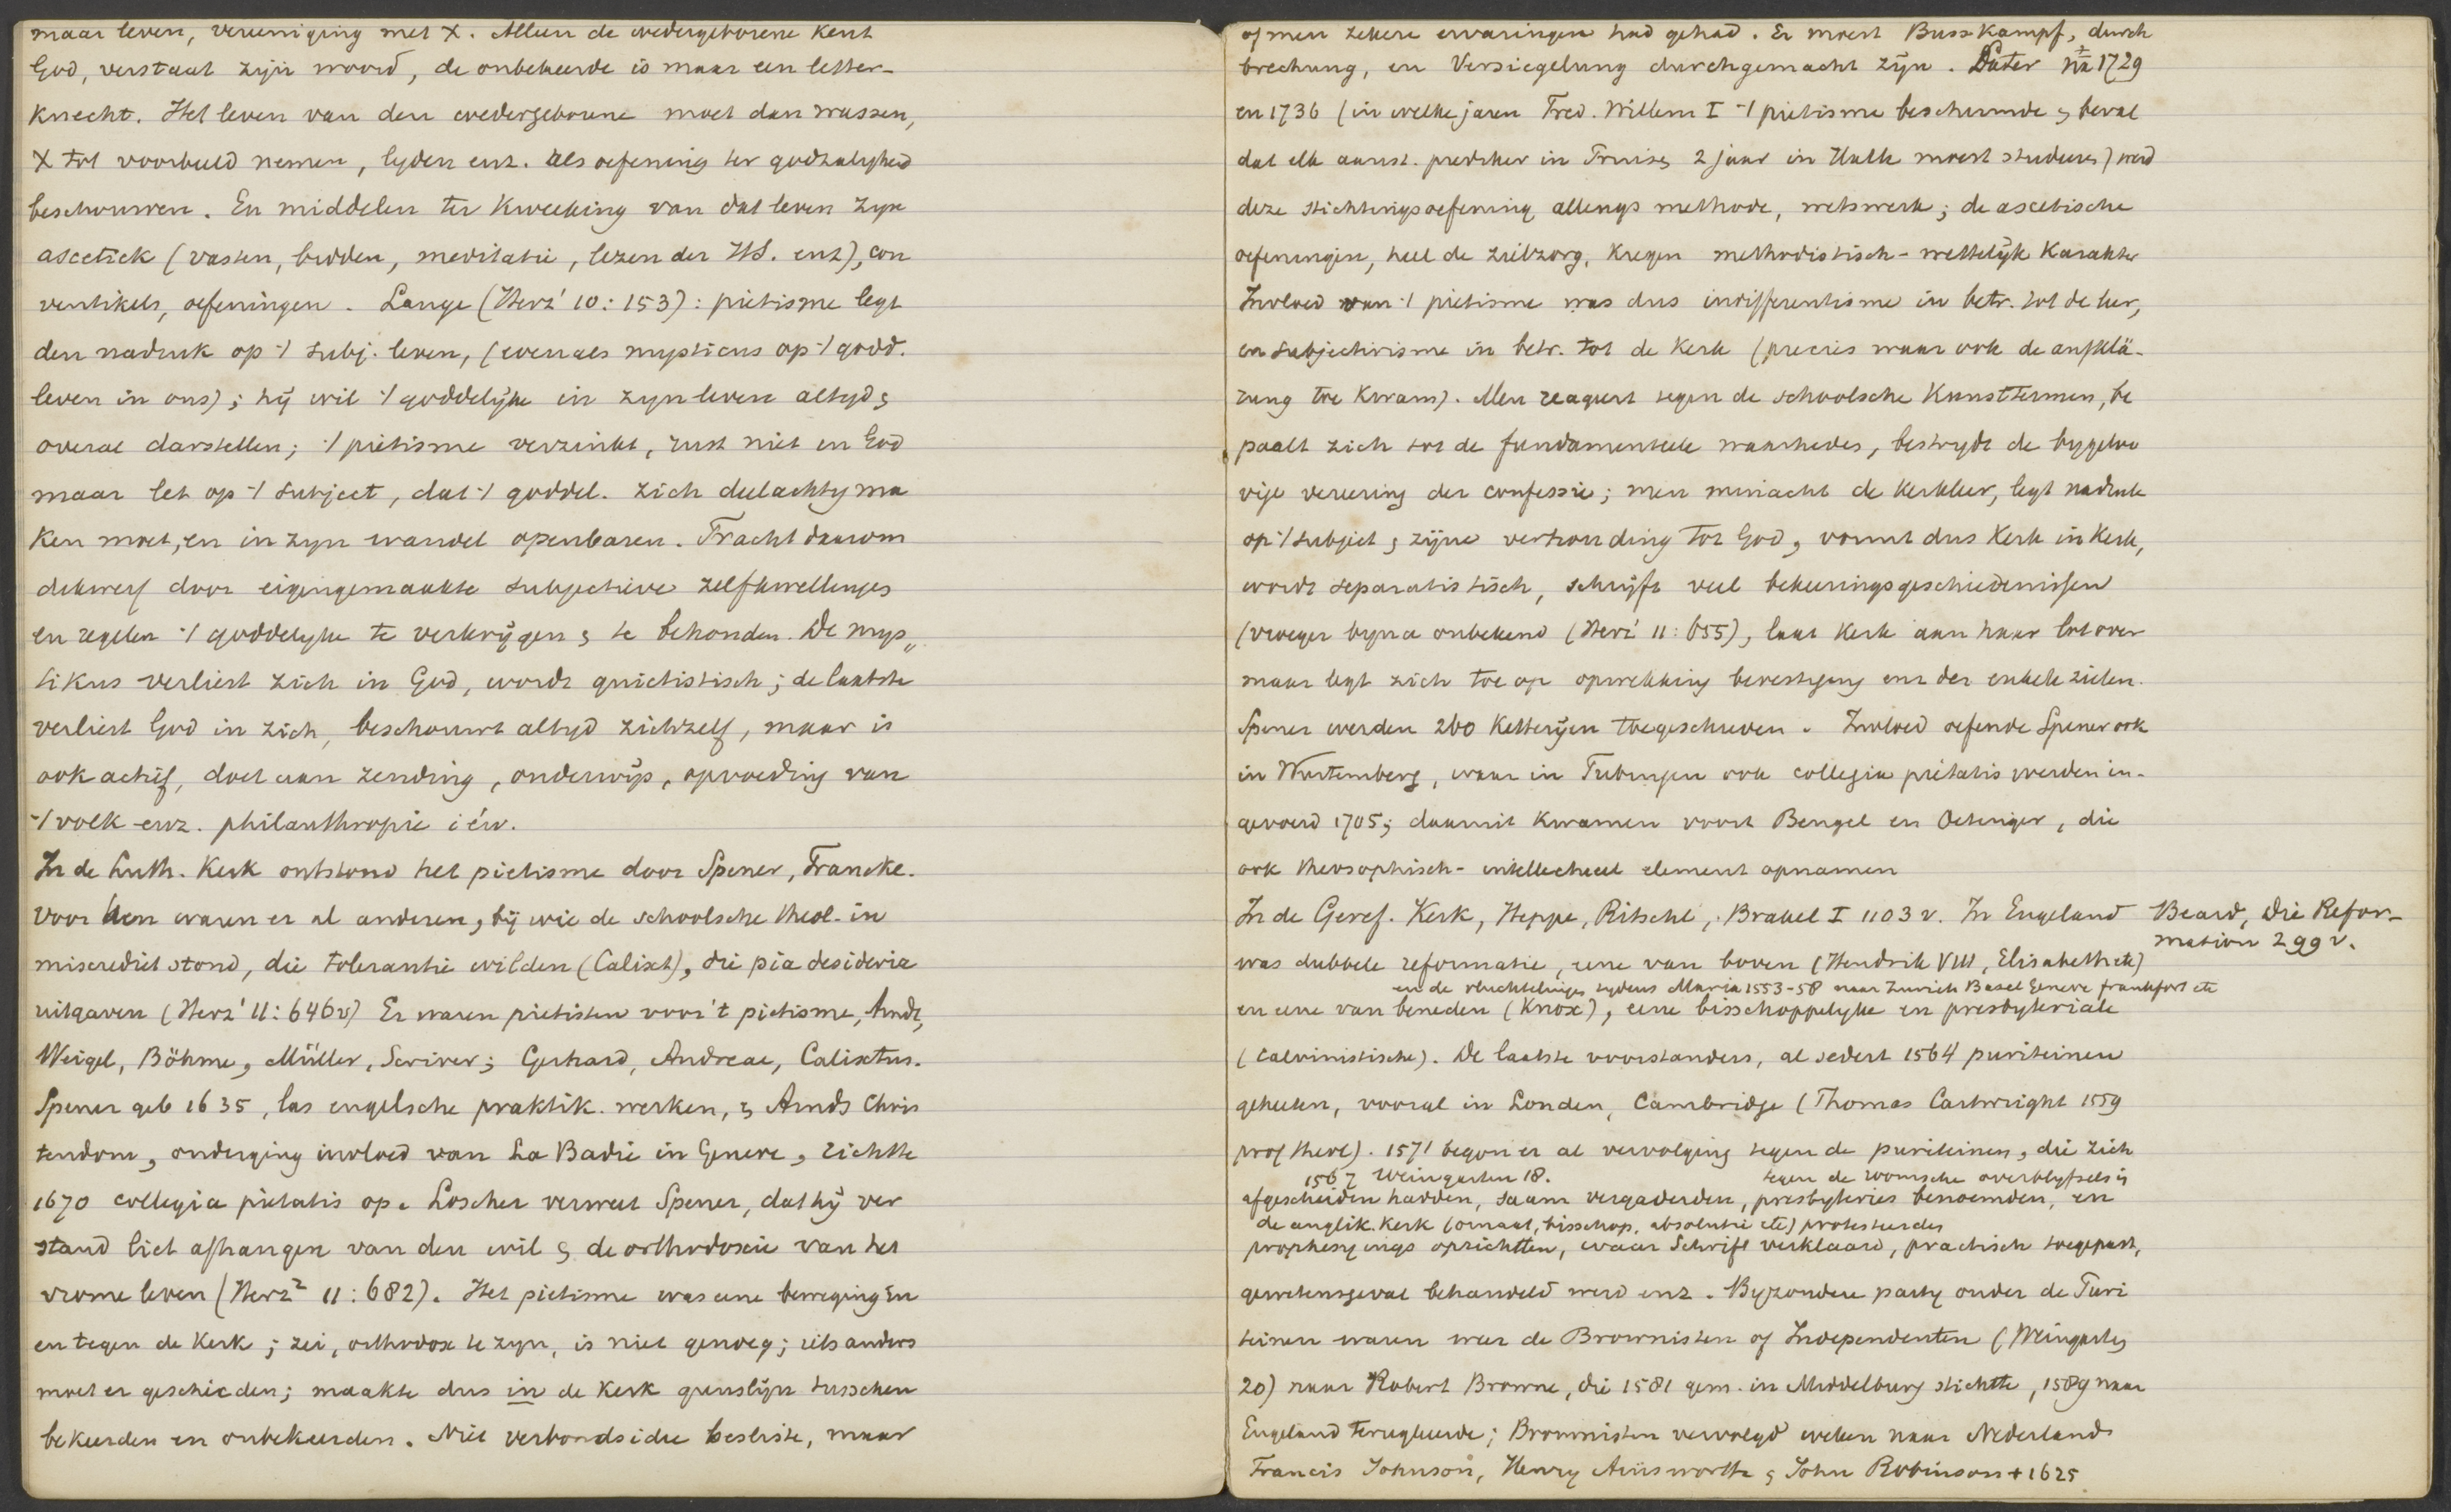 maar leven, vereeniging met X. Alleen de wedergeborene kent
God, verstaat zijn woord, de onbekeerde is maar een letter-
knecht. Het leven van den wedergeborene moet dan wassen,
X tot voorbeeld nemen, lyden enz. als oefening ter godzaligheid
beschouwen. En middelen ter kweeking van dat leven zyn
ascetick (vasten, bidden, meditatie, lezen der HS. enz), con
ventikels, oefeningen. Lange (Herz¹ 10: 153): pietisme legt
den nadruk op 't subj. leven, (evenals mysticus op 't godd.
leven in ons); hÿ wil 't goddelÿke in zyn leven altyd &
overal darstellen; 't pietisme verzinkt, rust niet in God
maar let op 't subject, dat 't goddel. zich deelachtig ma
ken moet, en in zyn wandel openbaren. Tracht daarom
dikwerf door eigengemaakte subjectieve zelfkwellinges
en regelen 't goddelyke te verkrÿgen & te behouden. De mys„
tikus verliest zich in God, wordt quietistisch; de laatste
verliest God in zich, beschouwt altyd zichzelf, maar is
ook actief, doet aan zending, onderwÿs, opvoeding van
't volk enz. philanthropie i éw.
In de Luth. Kerk ontstond het pietisme door Spener, Francke.
Voor hen waren er al anderen, bÿ wie de schoolsche theol. in
miscrediet stond, die tolerantie wilden (Calixt), die pia desideria
uitgaven (Herz¹ 11: 646v) Er waren pietisten voor 't pietisme, Arndt,
Weigel, Böhme, Müller, Scriver; Gerhard, Andreae, Calixtus.
Spener geb 1635, las engelsche praktik. werken, & Arnds Chris
tendom, onderging invloed van La Badie in Geneve, richtte
1670 collegia pietatis op. Löscher verweet Spener, dat hÿ ver
stand liet afhangen van den wil & de orthodoxie van het
vrome leven (Herz² 11: 682). Het pietisme was eene beweging in
en tegen de Kerk; zei, orthodox te zyn, is niet genoeg; iets anders
moet er geschieden; maakte dus in de Kerk grenslÿn tusschen
bekeerden en onbekeerden. Niet verbondsidee besliste, maar
of men zekere ervaringen had gehad. Er moest Busskampf, durch
brechung, en Versiegelung durchgemacht zÿn. Later na 1729
en 1736 (in welke jaren Fred. Willem I 't pietisme beschermde & beval
dat elk aanst. prediker in Pruisen 2 jaar in Halle moest studeren) werd
deze stichtingsoefening allengs methode, wetswerk; de ascetische
oefeningen, heel de zielzorg, kregen methodistisch-wettelÿk karakter
Invloed van 't pietisme was dus indifferentisme in betr. tot de leer,
en subjectivisme in betr. tot de Kerk (precies waar ook de aufklä-
rung toe kwam). Men reageert tegen de schoolsche Kunsttermen, be
paalt zich tot de fundamenteele waarheden, bestrydt de bygeloo
vige vereering der confessie; men minacht de kerkleer, legt nadruk
op 't subject & zÿne verhouding tot God, vormt dus Kerk in Kerk,
wordt separatistisch, schrÿft veel bekeeringsgeschiedenissen
(vroeger byna onbekend (Herz¹ 11: 655), laat Kerk aan haar lot over
maar legt zich toe op opwekking bevestiging enz der enkele zielen.
Spener werden 200 Ketterÿen toegeschreven. Invloed oefende Spener ook
in Wurtemberg, waar in Tubingen ook collegia pietatis werden in-
gevoerd 1705; daaruit kwamen voort Bengel en Oetinger, die
ook theosophisch-intellectueel element opnamen
In de Geref. Kerk, Heppe, Ritschl, Brakel I 1103 v. In Engeland
Beard, Die Refor-
mation 299 v.
was dubbele reformatie, eene van boven (Hendrik VIII, Elisabeth etc)
en de vluchtelinges tydens Maria 1553-58 naar Zurich Basel Geneve Frankfort etc
en eene van beneden (Knox), eene bisschoppelyke en presbyteriale
(Calvinistische). De laatste voorstanders, al sedert 1564 puriteinen
geheeten, vooral in Londen, Cambridge (Thomas Cartwright 1559
prof theol). 1571 begon er al vervolging tegen de puriteinen, die zich
1567 Weingarten 18. tegen de roomsche overblyfsels in
afgescheiden hadden, saam vergaderden, presbyteries benoemden, en
de anglik. Kerk (ornaat, bisschop, absolutie etc) protesteerden
prophesyings oprichtten, waar Schrift verklaard, practisch toegepast,
gewetensgeval behandeld werd enz. Byzondere party onder de Puri
teinen waren weer de Brownisten of Independenten (Weingarten
20) naar Robert Browne, die 1581 gem. in Middelburg stichtte, 1589 naar
Engeland terugkeerde; Brownisten vervolgd weken naar Nederland
Francis Johnson, Henry Ainsworth & John Robinson + 1625